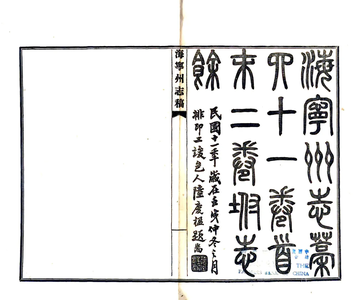 海寧州志藁
四十一卷首
末二卷坿志
餘
民國十一年歲在壬戌仲冬之月
排印工竣邑人慶題耑
海寧州志稿
THE
CHINA